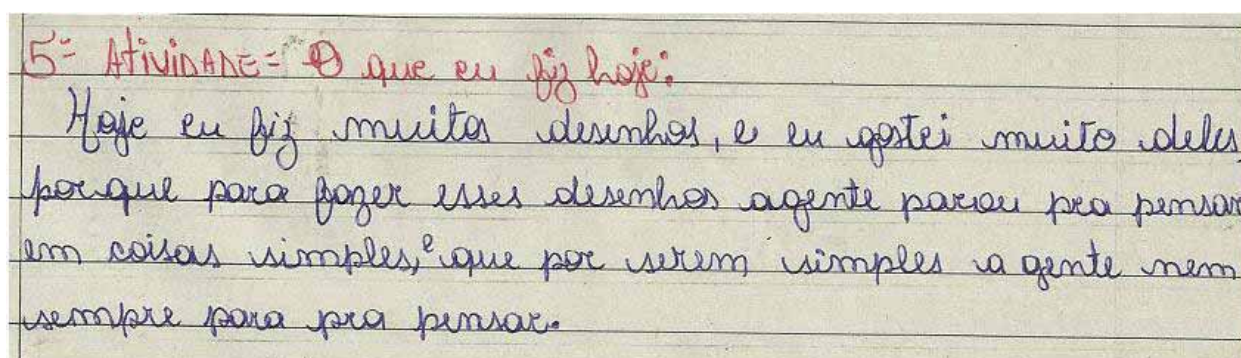 5ª Atividade = O que eu fiz hoje:
Hoje eu fiz muitos desenhos, e eu gostei muito deles,
porque para fazer esses desenhos agente parou pra pensar
em coisas simples, e que por serem simples a gente nem
sempre para pra pensar.